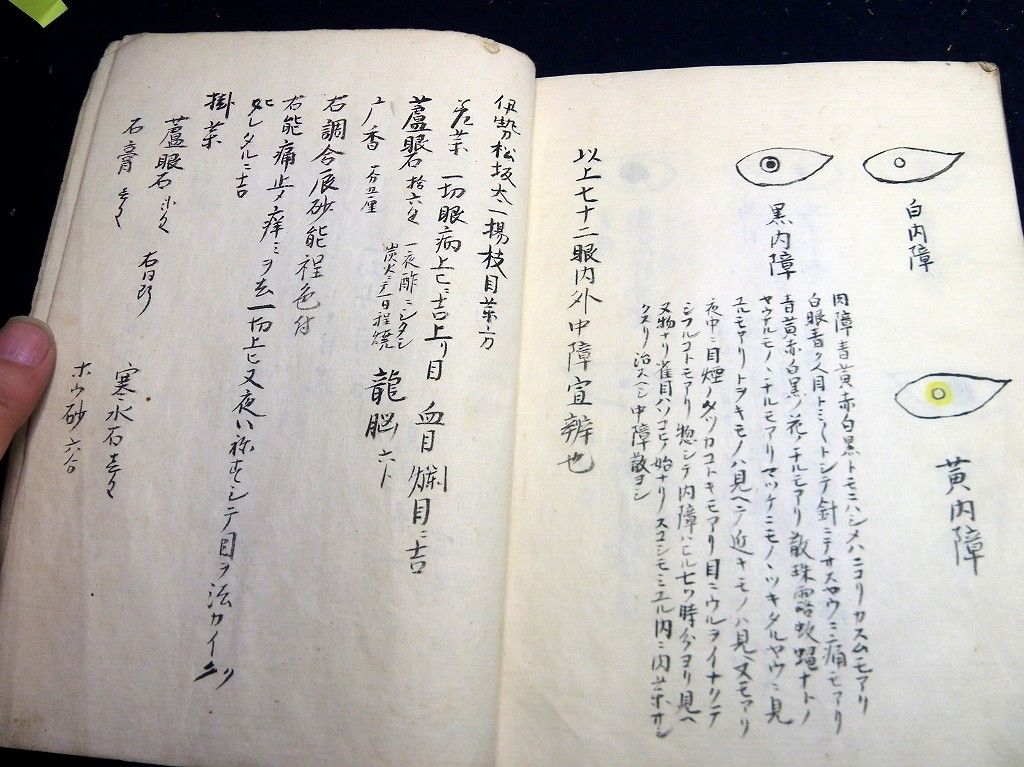 白内障
黒内障
黄内障
内障青黄赤白黒トモニハシメハニコリカスムモアリ
白眼青ク人目トミシトシテ針ニテサスヤウニ痛モアリ
青黄赤白黒ノ花ノチルモアリ散珠露蚊蝿ナトノ
ヤウナルモノヽチルモアリマツケニモノヽツキタルヤウニ見
ユルモアリトヲキモノハ見ヘテ近キモノハ見ヘヌモアリ
夜中ニ目煙ノタツカコトキモアリ目ニウルヲイナリテ
シフルコトモアリ惣シテ内障ハヒル七ツ時分ヨリ見ヘ
ヌ物ナリ雀目ハソコヒノ始ナリスコシモミエル内ニ内薬サシ
クスリ治スヘシ中障散ヨシ
以上七十二眼内外中障宜辨也
伊勢松坂太一揚枝目薬方
一切眼病上ニ吉上リ目 血目 爛目ニ吉
蘆眼石 拾六匁 一夜酢ニシタシ 炭火ニテ一日程焼 龍脳 六卜
香 一分五厘
右調合辰砂能程色付
右能痛止メ痒ミヲ去一切上ヒ又夜ハ祢ズシテ目ヲ法カイニツ
タレタルニ吉
掛薬
蘆眼石
石膏 寒水石
ホウ砂 六合